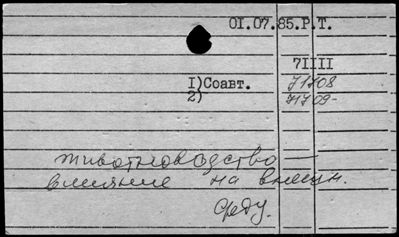 01.07.85.Р.Т.
7IIII
I)Соавт. 71708
2) 71709-
животноводство —
влияние на внешн.
среду.